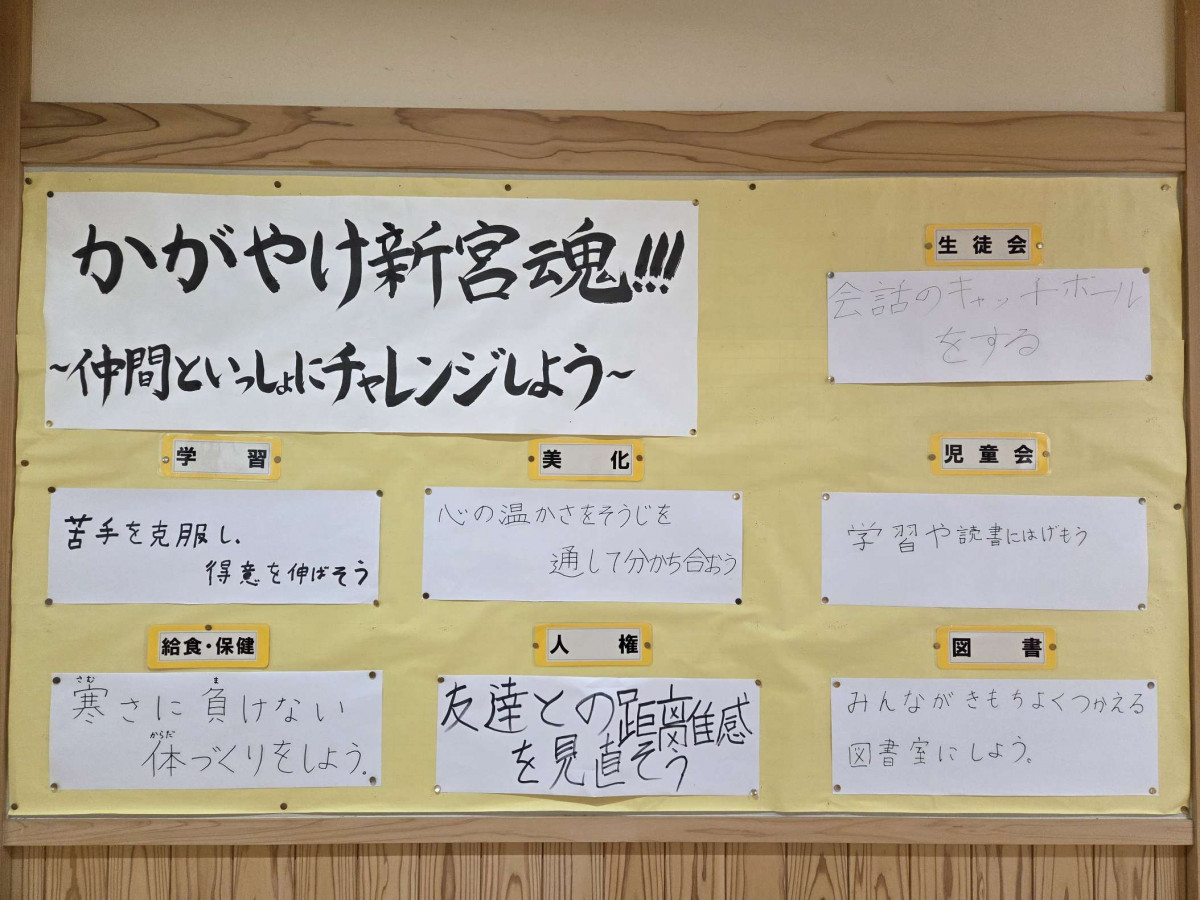 かがやけ新宮魂!!!
~仲間といっしょにチャレンジしよう~
生徒会
会話のキャッチボール
をする
学習
苦手を克服し、
得意を伸ばそう
美化
心の温かさをそうじを
通して分かち合おう
児童会
学習や読書にはげもう
給食・保健
さむ ま
寒さに負けない
からだ
体づくりをしよう。
人権
友達との距離感
を見直そう
図書
みんながきもちよくつかえる
図書室にしよう。